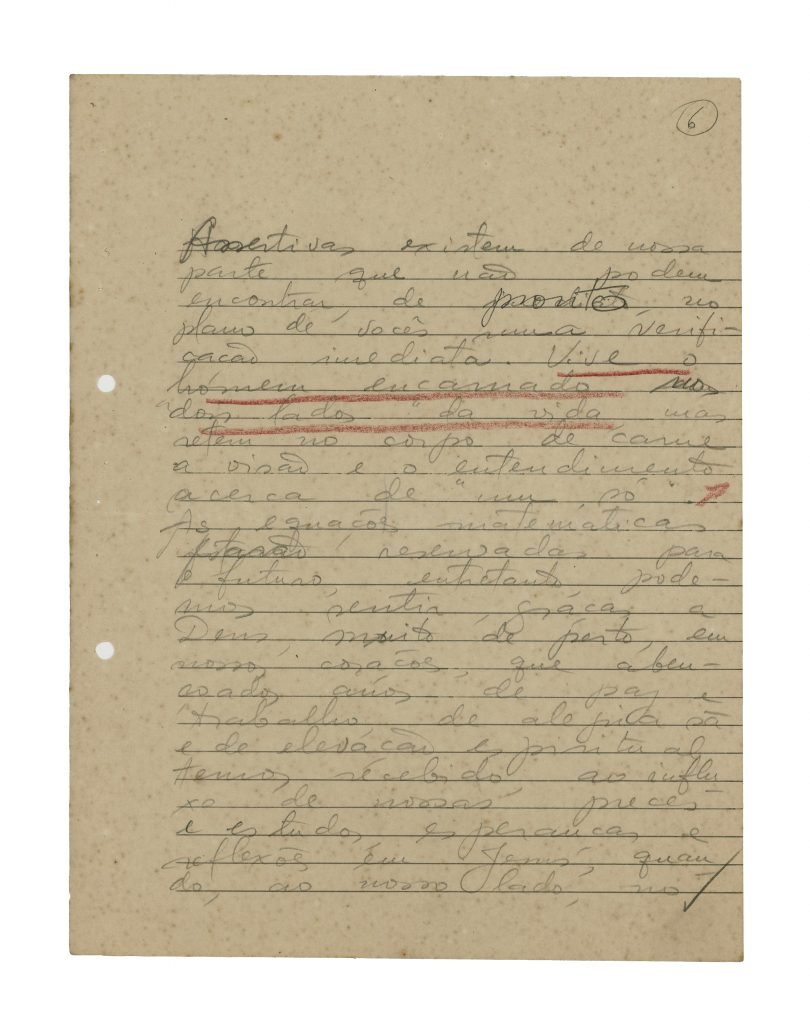 6
Assertivas existem de nossa
parte que não podem
encontrar, de pronto, no
plano de vocês numa verifi-
cação imediata. Vive o
homem encarnado nos
"dois lados" da vida mas
retém no corpo de carne
a visão e o entendimento
acerca de "um só".
As equações matemáticas
estarão reservadas para
o futuro, entretanto, pode-
mos sentir, graças a
Deus, muito de perto, em
nossos corações, que aben-
çoados anos de paz e
trabalho, de alegria sã
e de elevação espiritual
temos recebido, ao influ-
xo de nossas preces
e estudos, esperanças e
reflexões em Jesus, quan
do, ao nosso lado, no